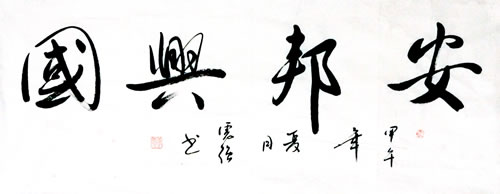 安邦興國
甲午
年
夏
月
书